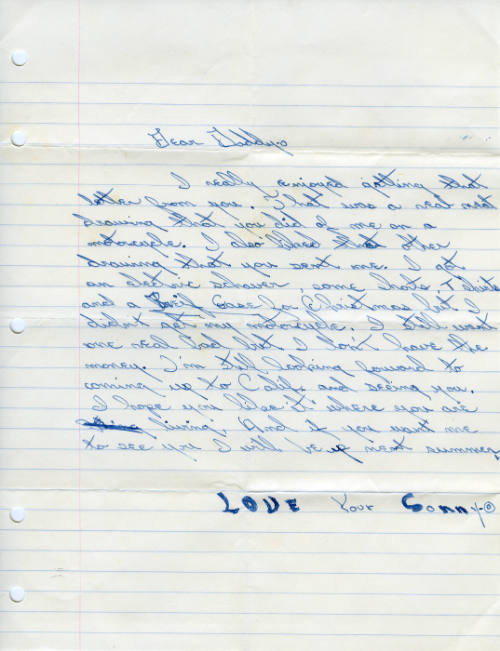 Dear Daddyo
I really enjoyed getting that
letter from you. That was a real neat
drawing that you did of me on a
motorcycle. I also liked the other
drawing that you sent me. I got
an electric shaver, some shots T'shirts
and a for Christmas but I
didn't get my motorcycle. I still want
one real bad but I don't have the
money. I'm still looking foward to
coming up to Calif. and seeing you.
I hope you like it where you are
living. And if you want me
to see you I will be up next summer,
LOVE Your Sonny